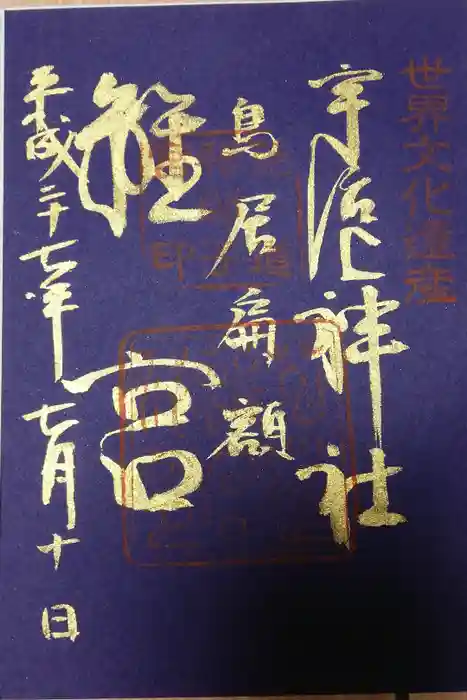 世界文化遺産
宇治神社
鳥居扁額
離宮
平成二十七年七月十日